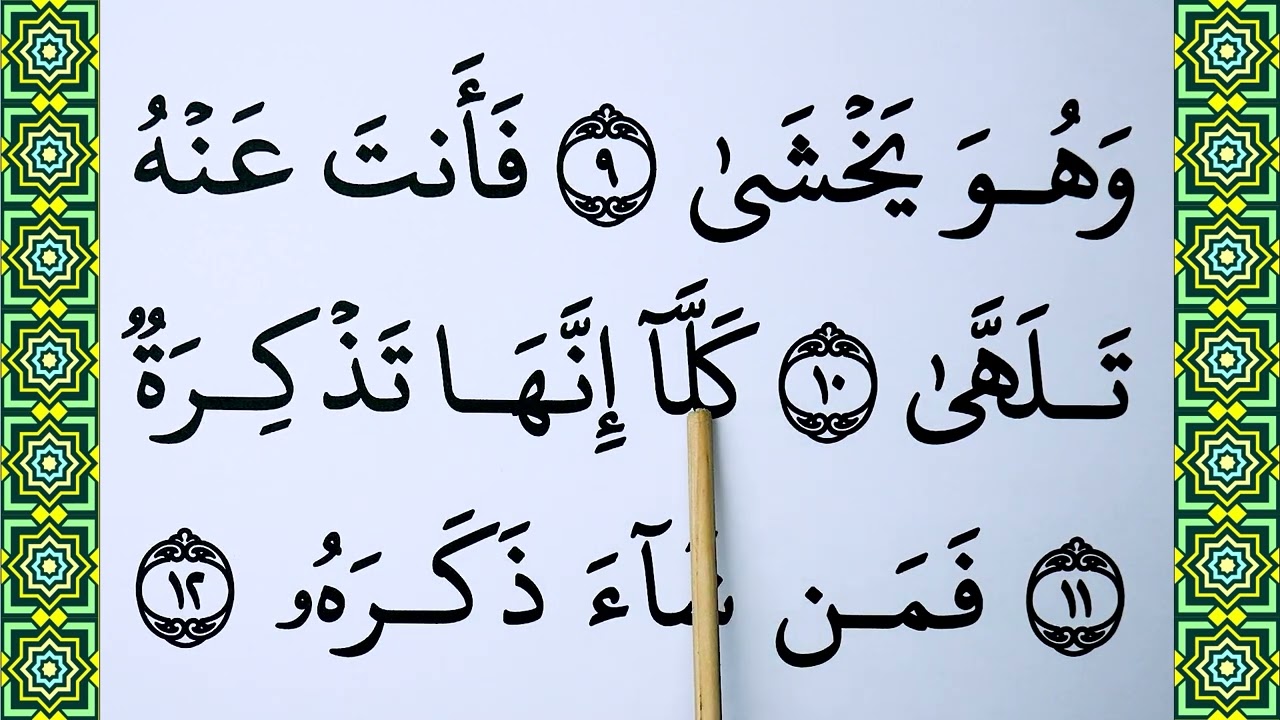 وَهُوَ يَخْشَىٰ ٩ فَأَنتَ عَنْهُ
تَلَهَّىٰ ١٠ كَلَّآ إِنَّهَا تَذْكِرَةٌ
١١ فَمَن شَآءَ ذَكَرَهُۥ ١٢